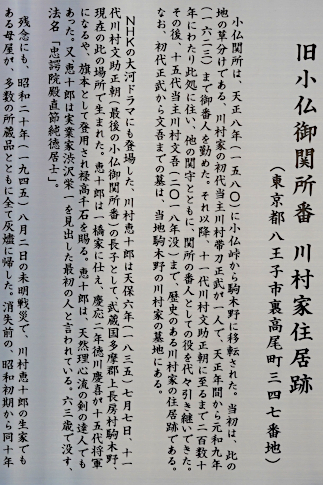 旧小仏御関所番 川村家住居跡
(東京都八王子市裏高尾町三四七番地)
小仏関所は、天正八年(一五八〇)に小仏峠から駒木野に移転された。当初は、此の
地の草分けである、川村家の初代当主川村帯刀正武が一人で、天正年間から元和九年
(一六二三)まで御番人を勤めた。それ以降、十一代川村文助正朝に至るまで二百数十
年にわたり此処に住い、他の関守とともに、関所の番人としての役を代々引き継いできた。
その後、十五代当主川村文吾(二〇一八年没)まで、歴史のある川村家の住居跡である。
なお、初代正武から文吾までの墓は、当地駒木野の川村家の墓地にある。
NHKの大河ドラマにも登場した、川村恵十郎は天保六年(一八三五)七月七日、十一
代川村文助正朝(最後の小仏御関所番)の長子として、「武蔵国多摩郡上長房村駒木野、
現在の此の場所で生まれた。恵十郎は一橋家に仕え、慶応二年徳川慶喜が十五代将軍
になるや、旗本として登用され禄高千石を賜る。恵十郎は、天然理心流の剣の達人でも
あった。又恵十郎は実業家渋沢栄一を見出した最初の人と言われている。六三歳で没す、
法名「忠諤院殿直節純徳居士」。
残念にも、昭和二十年(一九四五)八月二日の未明戦災で、川村恵十郎の生家でも
ある母屋が、多数の所蔵品とともに全て灰燼に帰した。消失前の、昭和初期から同十年